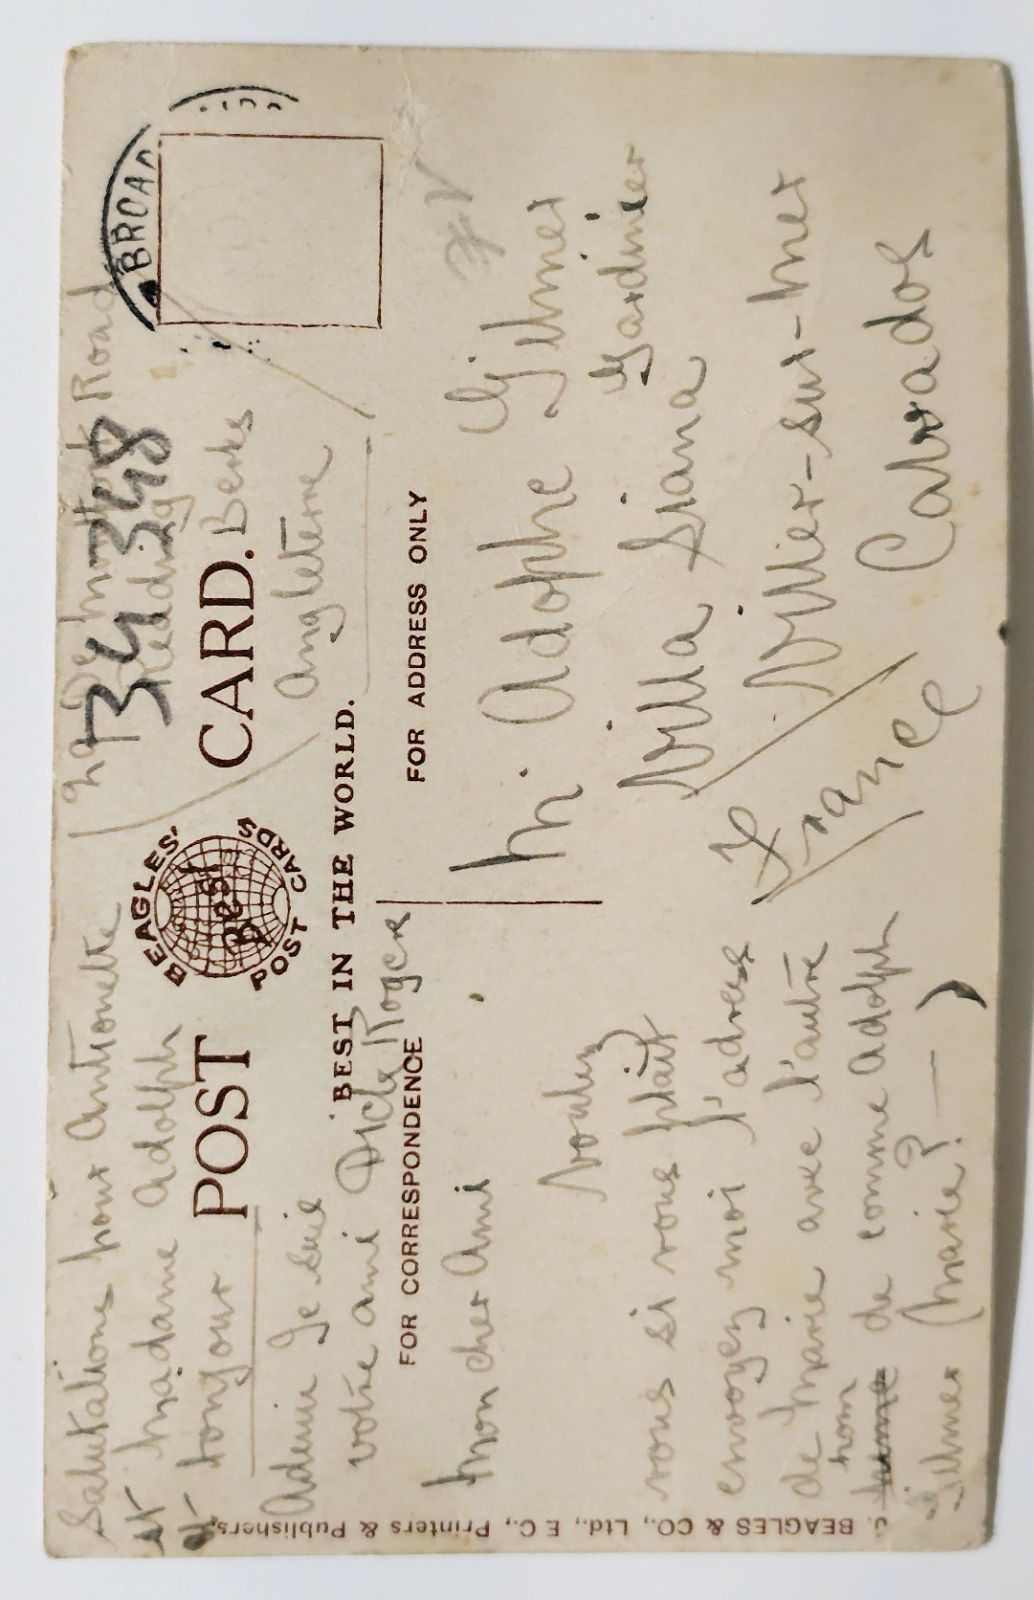 Salutations pour Antionette
et Madame Adolph
et tonjour
Adeiu Je suis
votre ami Dick Rogers
29 De Road
Reading
Berks
Angleterre
T34348
BROAD
POST CARD.
BEAGLES'
Best
POST CARDS
BEST IN THE WORLD.
FOR CORRESPONDENCE
FOR ADDRESS ONLY
Mon cher Ami
Voulez
vous si vous plait
envoyez moi l'adress
de Marie avec l'autre
nom de comme Adolph
Gilmer (Marie? — )
M. Adolphe Gilmer
Gardinier
Villa Siana
Viller-sur-Mer
Calvados
France
J. BEAGLES & CO., Ltd., E C., Printers & Publishers.